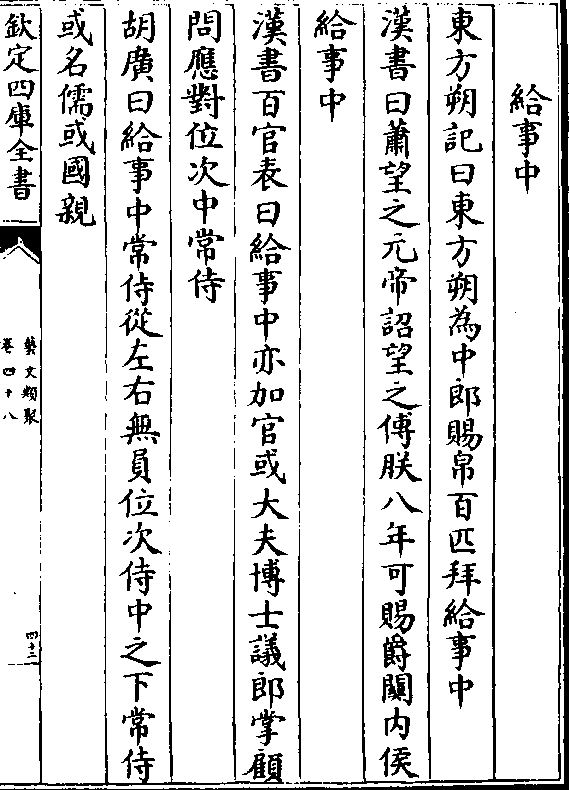 給事中
東方朔記曰東方朔為中郎賜帛百匹拜給事中
漢書曰蕭望之元帝詔望之傅朕八年可賜爵關内侯
給事中
漢書百官表曰給事中亦加官或大夫博士議郎掌顧
問應對位次中常侍
胡廣曰給事中常侍從左右無員位次侍中之下常侍
或名儒或國親
欽定四庫全書
藝文類聚
卷四十八
四十三